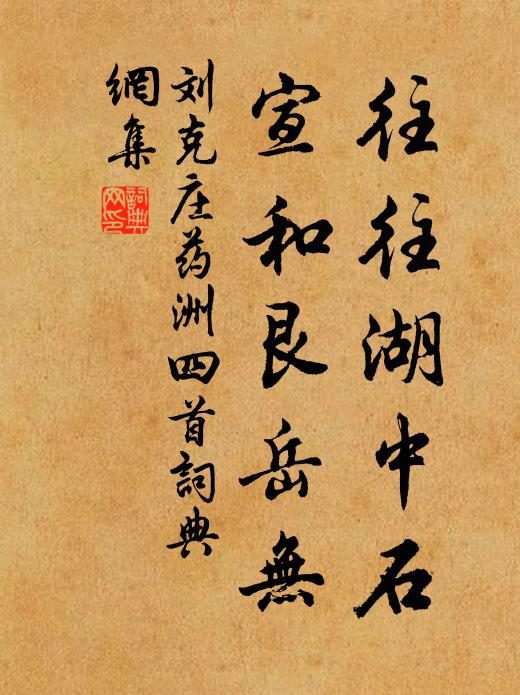 往往湖中石
宣和艮岳無
刘克庄药洲四首詞典
網集
詞典
网印